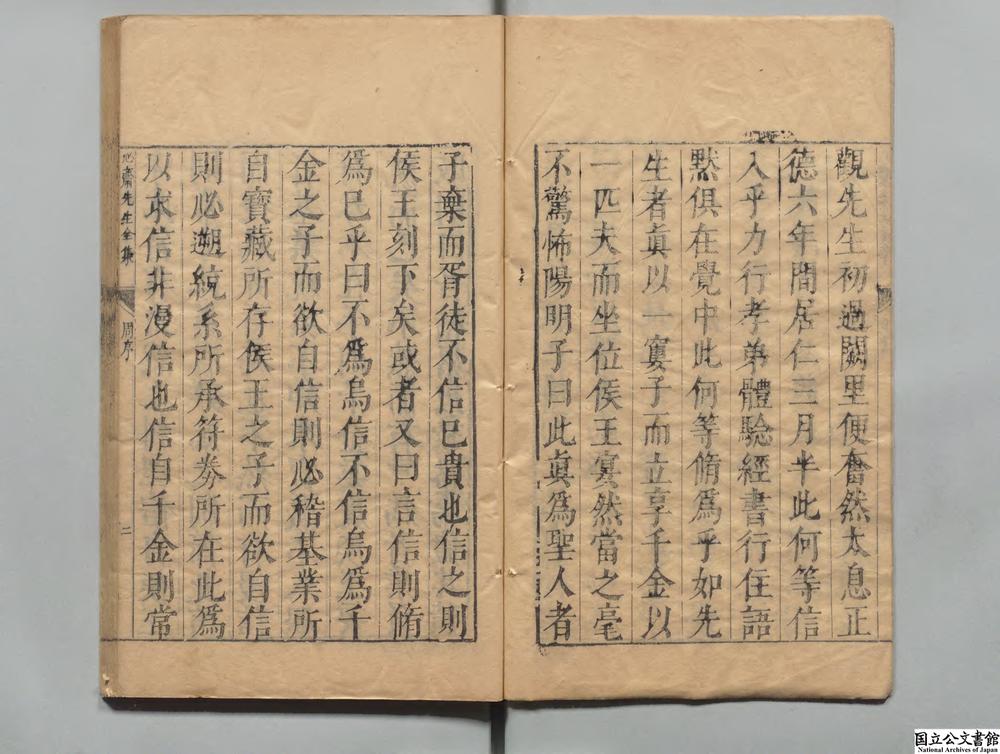 觀先生初過闕里便奮然太息正
德六年間居仁三月半此何等信
入乎力行孝弟體驗經書行住語
默俱在覺中此何等脩爲乎如先
生者眞以一寠子而立享千金以
一匹夫而坐位侯王寞然當之毫
不驚怖陽明子曰此眞爲聖人者
子棄而胥徒不信已貴也信之則
侯王刻下矣或者又曰言信則脩
爲已乎曰不爲烏信不信烏爲千
金之子而欲自信則必稽基業所
自寶藏所存侯王之子而欲自信
則必遡統系所承符券所在此爲
以求信非漫信也信自千金則常
心齋先生全集
周序
二
国立公文書館
National Archives of Japan